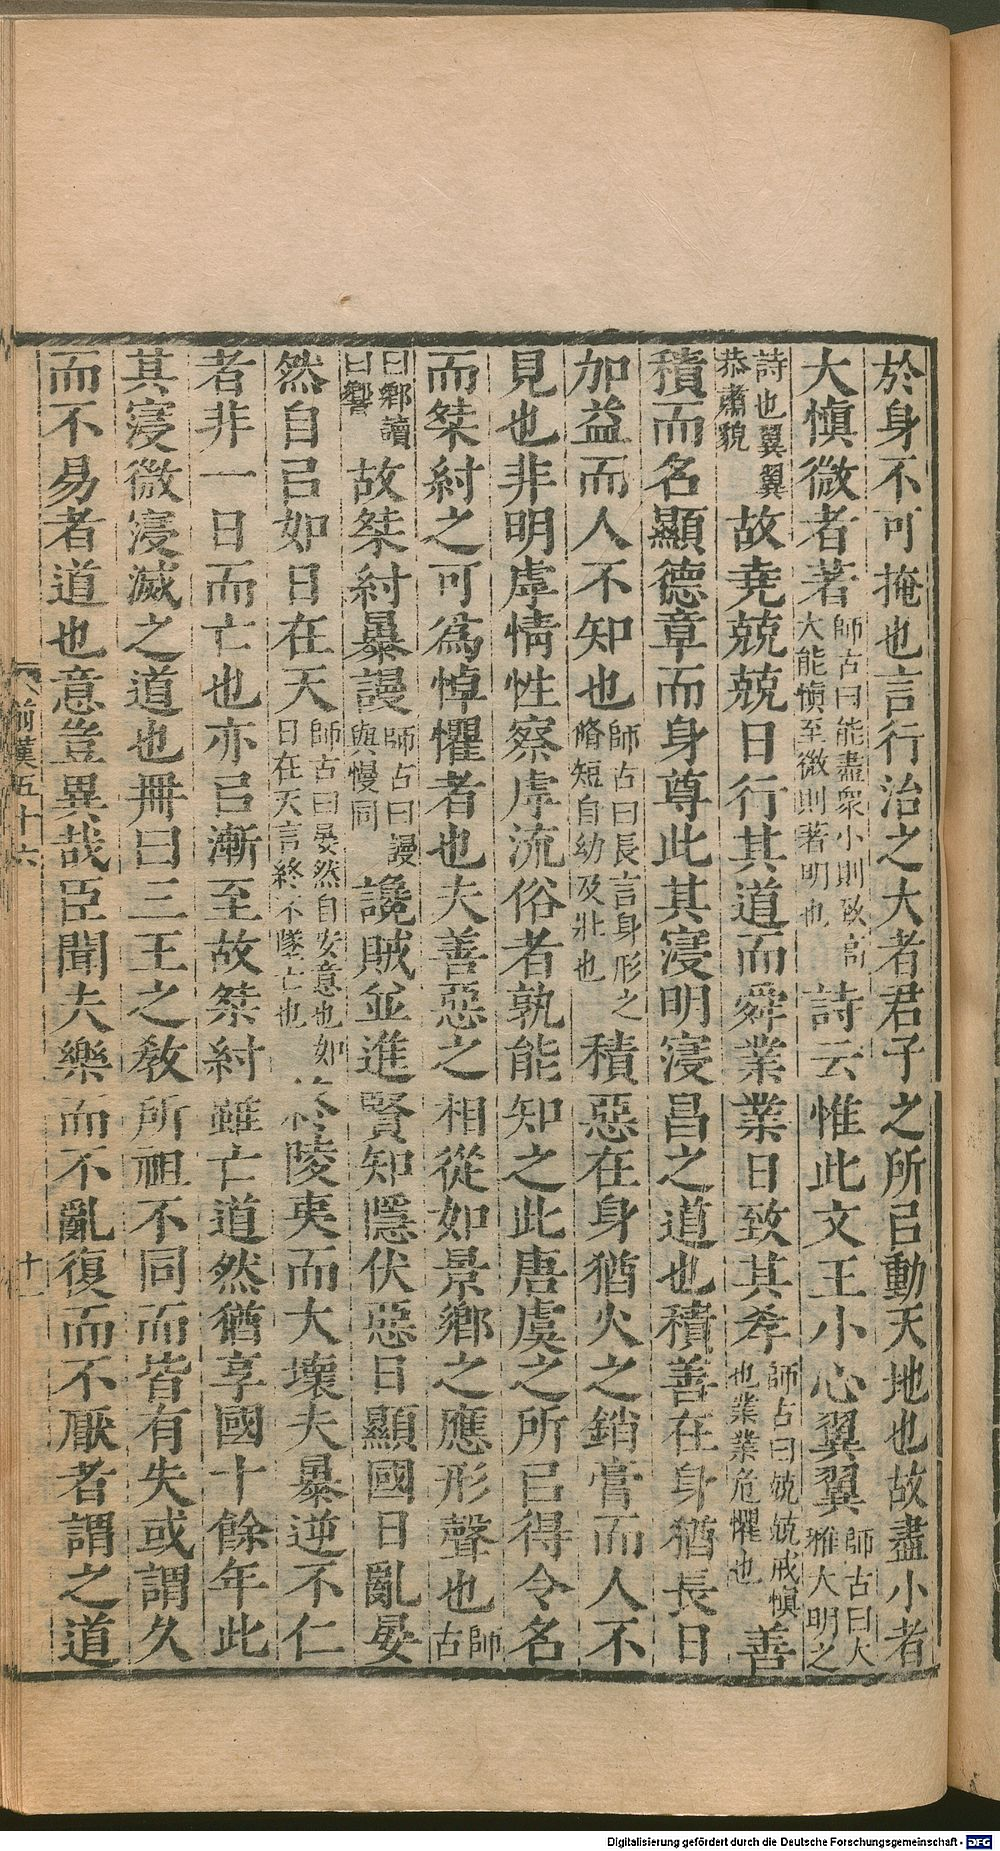 於身不可掩也言行治之大者君子之所㠯動天地也故盡小者
大慎微者著師古曰能盡衆小則致高大能慎至微則著明也詩云惟此文王小心翼翼師古曰大雅大明之
詩也翼翼恭肅貌故堯兢兢日行其道而舜業業日致其孝師古曰兢兢戒慎也業業危懼也善
積而名顯德章而身尊此其寖明寖昌之道也積善在身猶長日
加益而人不知也師古曰長言身形之脩短自幼及壯也積惡在身猶火之銷膏而人不
見也非明虖情性察虖流俗者孰能知之此唐虞之所㠯得令名
而桀紂之可為悼懼者也夫善惡之相從如景鄉之應形聲也師古
曰鄉讀曰響故桀紂暴謾師古曰謾與慢同讒賊並進賢知隱伏惡日顯國日亂晏
然自㠯如日在天師古曰晏然自安意也如日在天言終不墜亡也終陵夷而大壞夫暴逆不仁
者非一日而亡也亦㠯漸至故桀紂雖亡道然猶享國十餘年此
其寖微寖滅之道也冊曰三王之教所祖不同而皆有失或謂久
而不易者道也意豈異哉臣聞夫樂而不亂復而不厭者謂之道
前漢五十六
十一
Digitalisierung gefördert durch die Deutsche Forschungsgemeinschaft - DFG